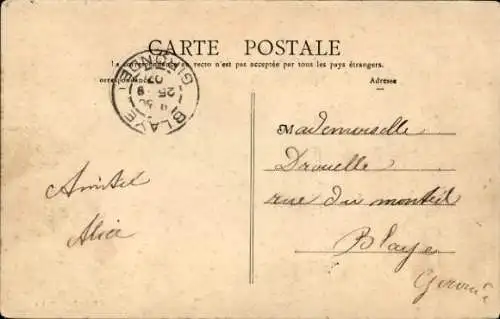 CARTE POSTALE
La correspondance au recto n'est pas acceptée par tous les pays étrangers.
Correspondance
Adresse
BLAYE
GIRONDE
25 -9
07
Mademoiselle
Drouelle
rue du monteil
Blaye
Gironde
Amitél
Alice